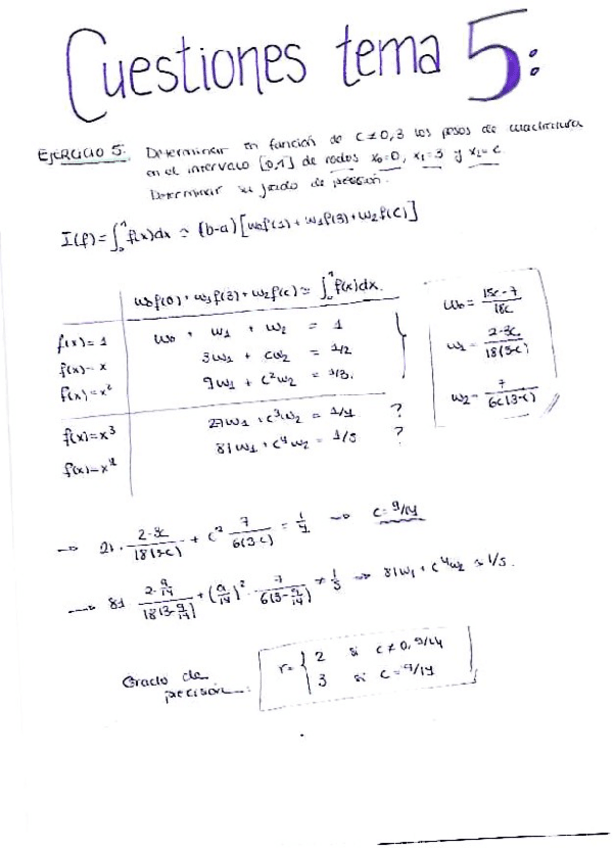 Cuestiones tema 5:
EJERCICIO 5. Determinar en función de c≠0,3 los pesos de cuadratura
en el intervalo [0,1] de nodos x₀=0, x₁=3 y x₂=c
Determinar su grado de precisión.
I(f)=∫₀¹ f(x)dx ≃ (b-a)[w₀f(1)+w₁f(3)+w₂f(c)]
w₀f(0)+w₁f(3)+w₂f(c)≃∫₀¹ f(x)dx.
f(x)=1 w₀ + w₁ + w₂ = 1
f(x)=x 3w₁ + cw₂ = 1/2
f(x)=x² 9w₁ + c²w₂ = 1/3.
w₀= 15c-7/18c
w₁= 2-3c/18(3-c)
w₂= 7/6c(3-c)
f(x)=x³ 27w₁+c³w₂ = 1/4 ?
81w₁+c⁴w₂ = 1/5 ?
→ 2-3c/18(3-c) + c² 7/6(3-c) = 1/4 → c=9/14
→ 81 + (9/14)² · 7/6(3-9/14) ≠ 1/5 ⇒ 81w₁+c⁴w₂ 1/5.
Grado de
precisión:
r= { 2 si c≠0, 9/14
3 si c=9/14